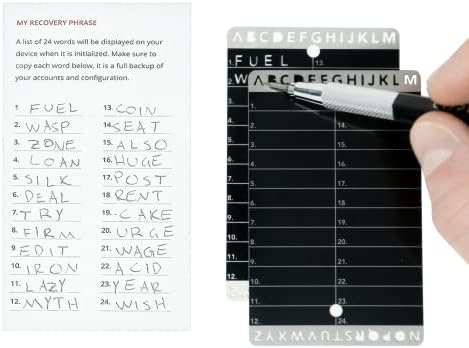 MY RECOVERY PHRASE
A list of 24 words will be displayed on your
device when it is initialized. Make sure to
copy each word below, it is a full backup of
your accounts and configuration.
1 FUEL
2. WASP
3. ZONE
4. LOAN
5. SILK
6. DEAL
7. TRY
8. FIRM
9 EDIT
10. IRON
11. LAZY
12. MYTH
13. COIN
14. SEAT
15. ALSO
16. HUGE
17. POST
18 RENT
19. CAKE
20. URGE
21. WAGE
22. ACID
23. YEAR
24. WISH
ABCDEFGHIJKLM
1. FUEL
13.
W
ABCDEFGHIJKLM
1.
2.
3.
4.
5.
6.
7.
8.
9.
10.
11.
12.
14.
15.
16.
17.
18.
19.
20.
21.
22.
23.
24.
10.
11.
12.
NOPQRSTUVWXYZ